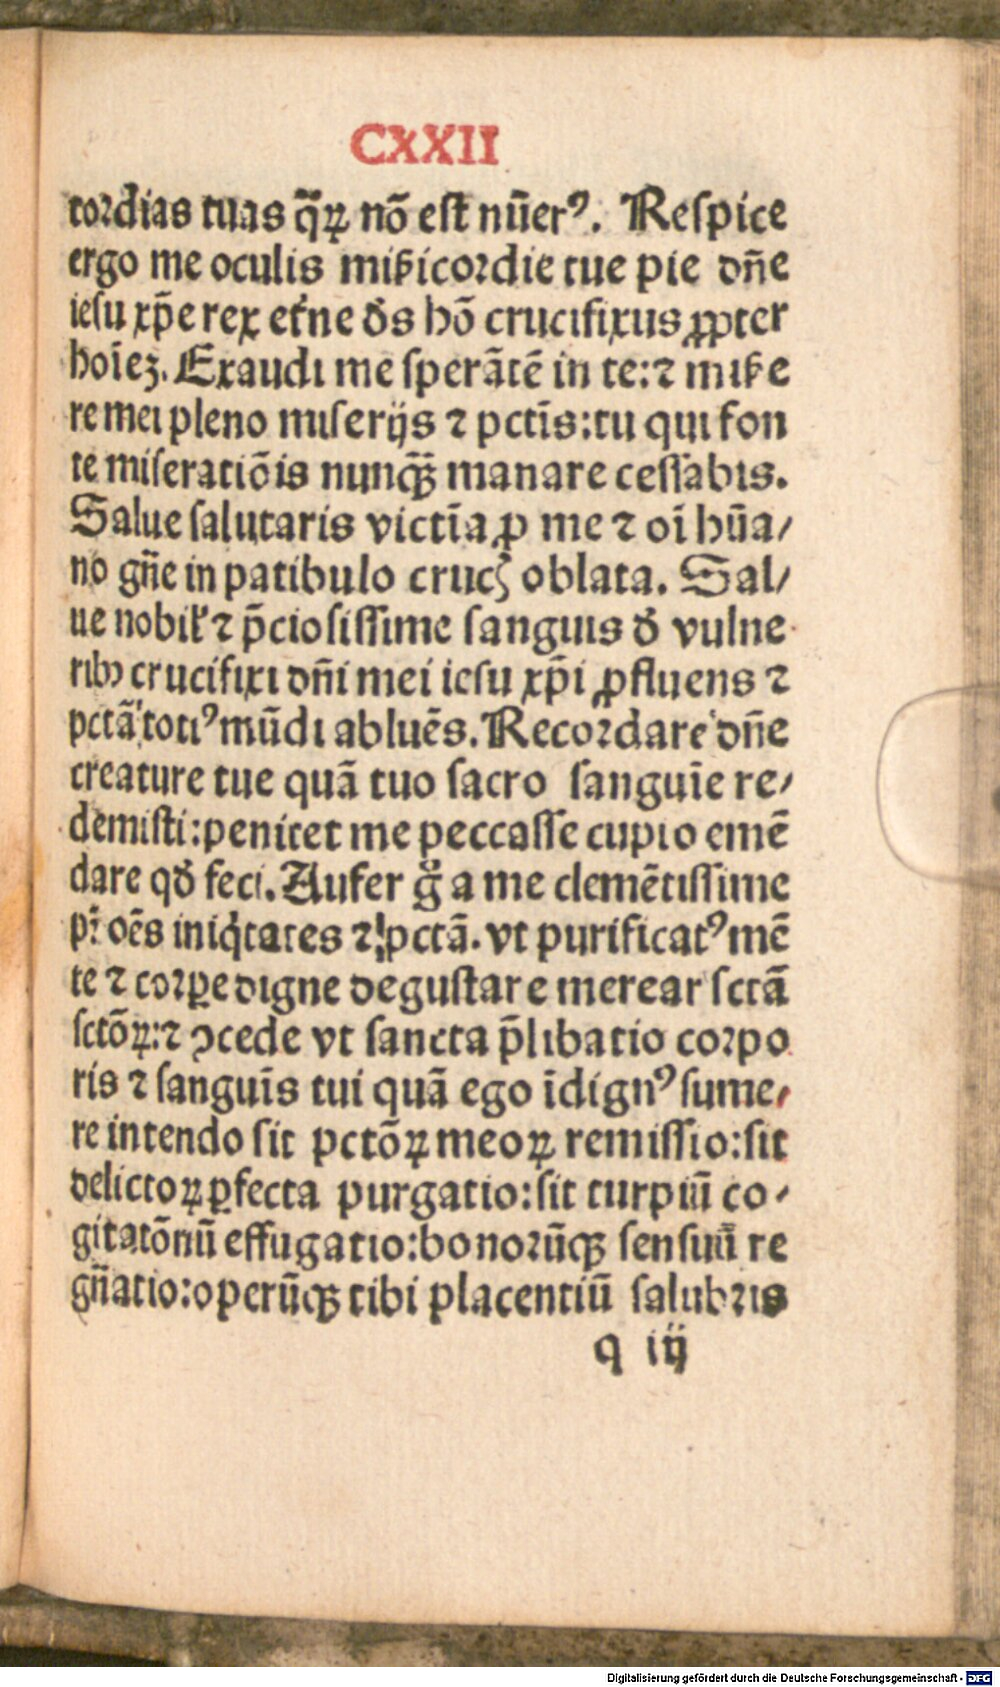 CXXII
cordias tuas q̃ꝝ nō est nũerꝰ. Respice
ergo me oculis miẜicordie tue pie dñe
iesu xp̃e rex et̾ne d̾s hō crucifixus ꝓpter
hoīez. Exaudi me sperātē in te: ⁊ miẜe
re mei pleno miserijs ⁊ pctīs: tu qui fon
te miseratiōis nunq̃ꝫ manare cessabis.
Salue salutaris victīa ꝓ me ⁊ oī hūa/
no gñe in patibulo crucꝭ oblata. Sal/
ue nobil̾ ⁊ p̃ciosissime sanguis d̾ vulne
ribꝫ crucifixi dñi mei iesu xp̃i ꝓfluens ⁊
pctā totiꝰ mūdi abluēs. Recordare dñe
creature tue quā tuo sacro sanguīe re/
demisti: penitet me peccasse cupio emē
dare qd̾ feci. Aufer g̊ a me clemētissime
pr̄ oēs iniq̇tates ⁊ pctā. vt purificatꝰ mē
te ⁊ corꝑe digne degustare merear sctā
sctōꝝ: ⁊ ꝯcede vt sancta p̄libatio corpo
ris ⁊ sanguīs tui quā ego īdignꝰ sume/
re intendo sit pctōꝝ meoꝝ remissio: sit
delictoꝝ ꝑfecta purgatio: sit turpiū co/
gitatōnū effugatio: bonorūqꝫ sensuū re
gñatio: operūqꝫ tibi placentiū salubris
q iij
Digitalisierung gefördert durch die Deutsche Forschungsgemeinschaft - DFG